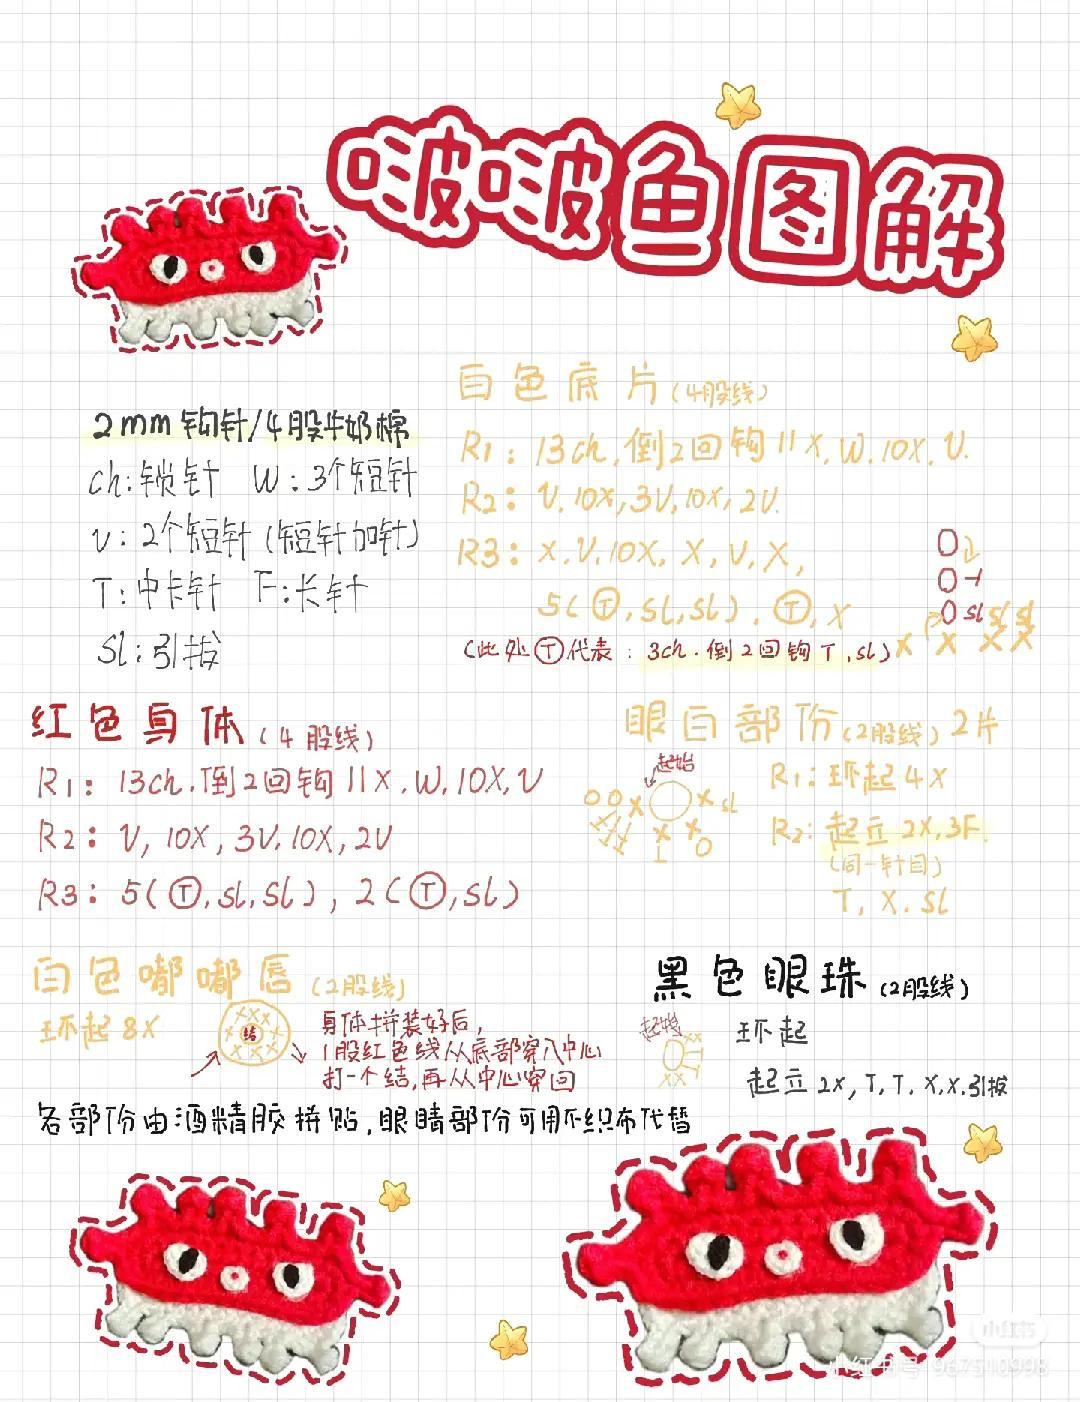 啵啵鱼图解
2mm 钩针/4股牛奶棉
ch:锁针 W:3个短针
V:2个短针(短针加针)
T:中长针 F:长针
Sl:引拔
白色底片(4股线)
R1:13ch.倒2回钩11X.W.10X.V.
R2:V.10X,3V,10X,2V.
R3:X.V.10X.X,V,X,
5(Ⓣ,sl,sl).Ⓣ,X
(此处Ⓣ代表:3ch.倒2回钩T.sl)
O
O T
O sl sl sl
X X X X
红色身体(4股线)
R1:13ch.倒2回钩11X.W.10X,V
R2:V,10X,3V.10X,2V
R3:5(Ⓣ,sl,sl),2(Ⓣ,sl)
眼白部份(2股线)2片
起始
R1:环起4X
R2:起立2X,3F.
(同一针目)
T,X.Sl
白色嘟嘟唇(2股线)
环起8X
结
身体拼装好后,
1股红色线从底部穿入中心
打一个结,再从中心穿回
黑色眼珠(2股线)
起始
环起
起立2X,T,T.X,X.引拔
各部份由酒精胶拼贴,眼睛部份可用不织布代替
小红书
小红书号 967510998